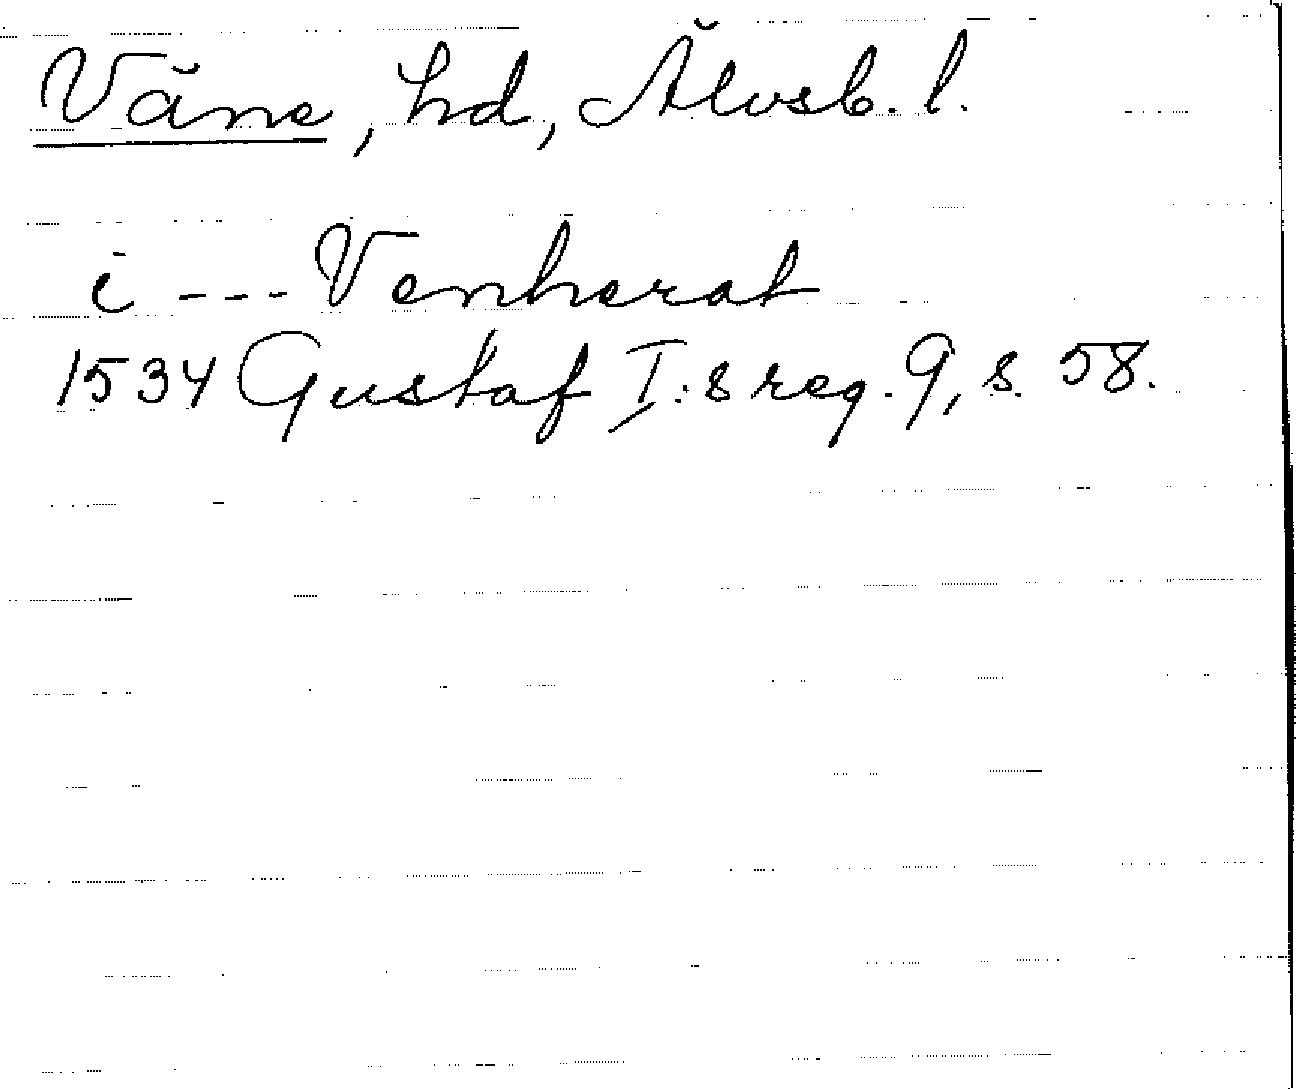 Väne, hd, Älvsb. l.
i --- Venherat
1534 Gustaf I:s reg. 9, s. 58.